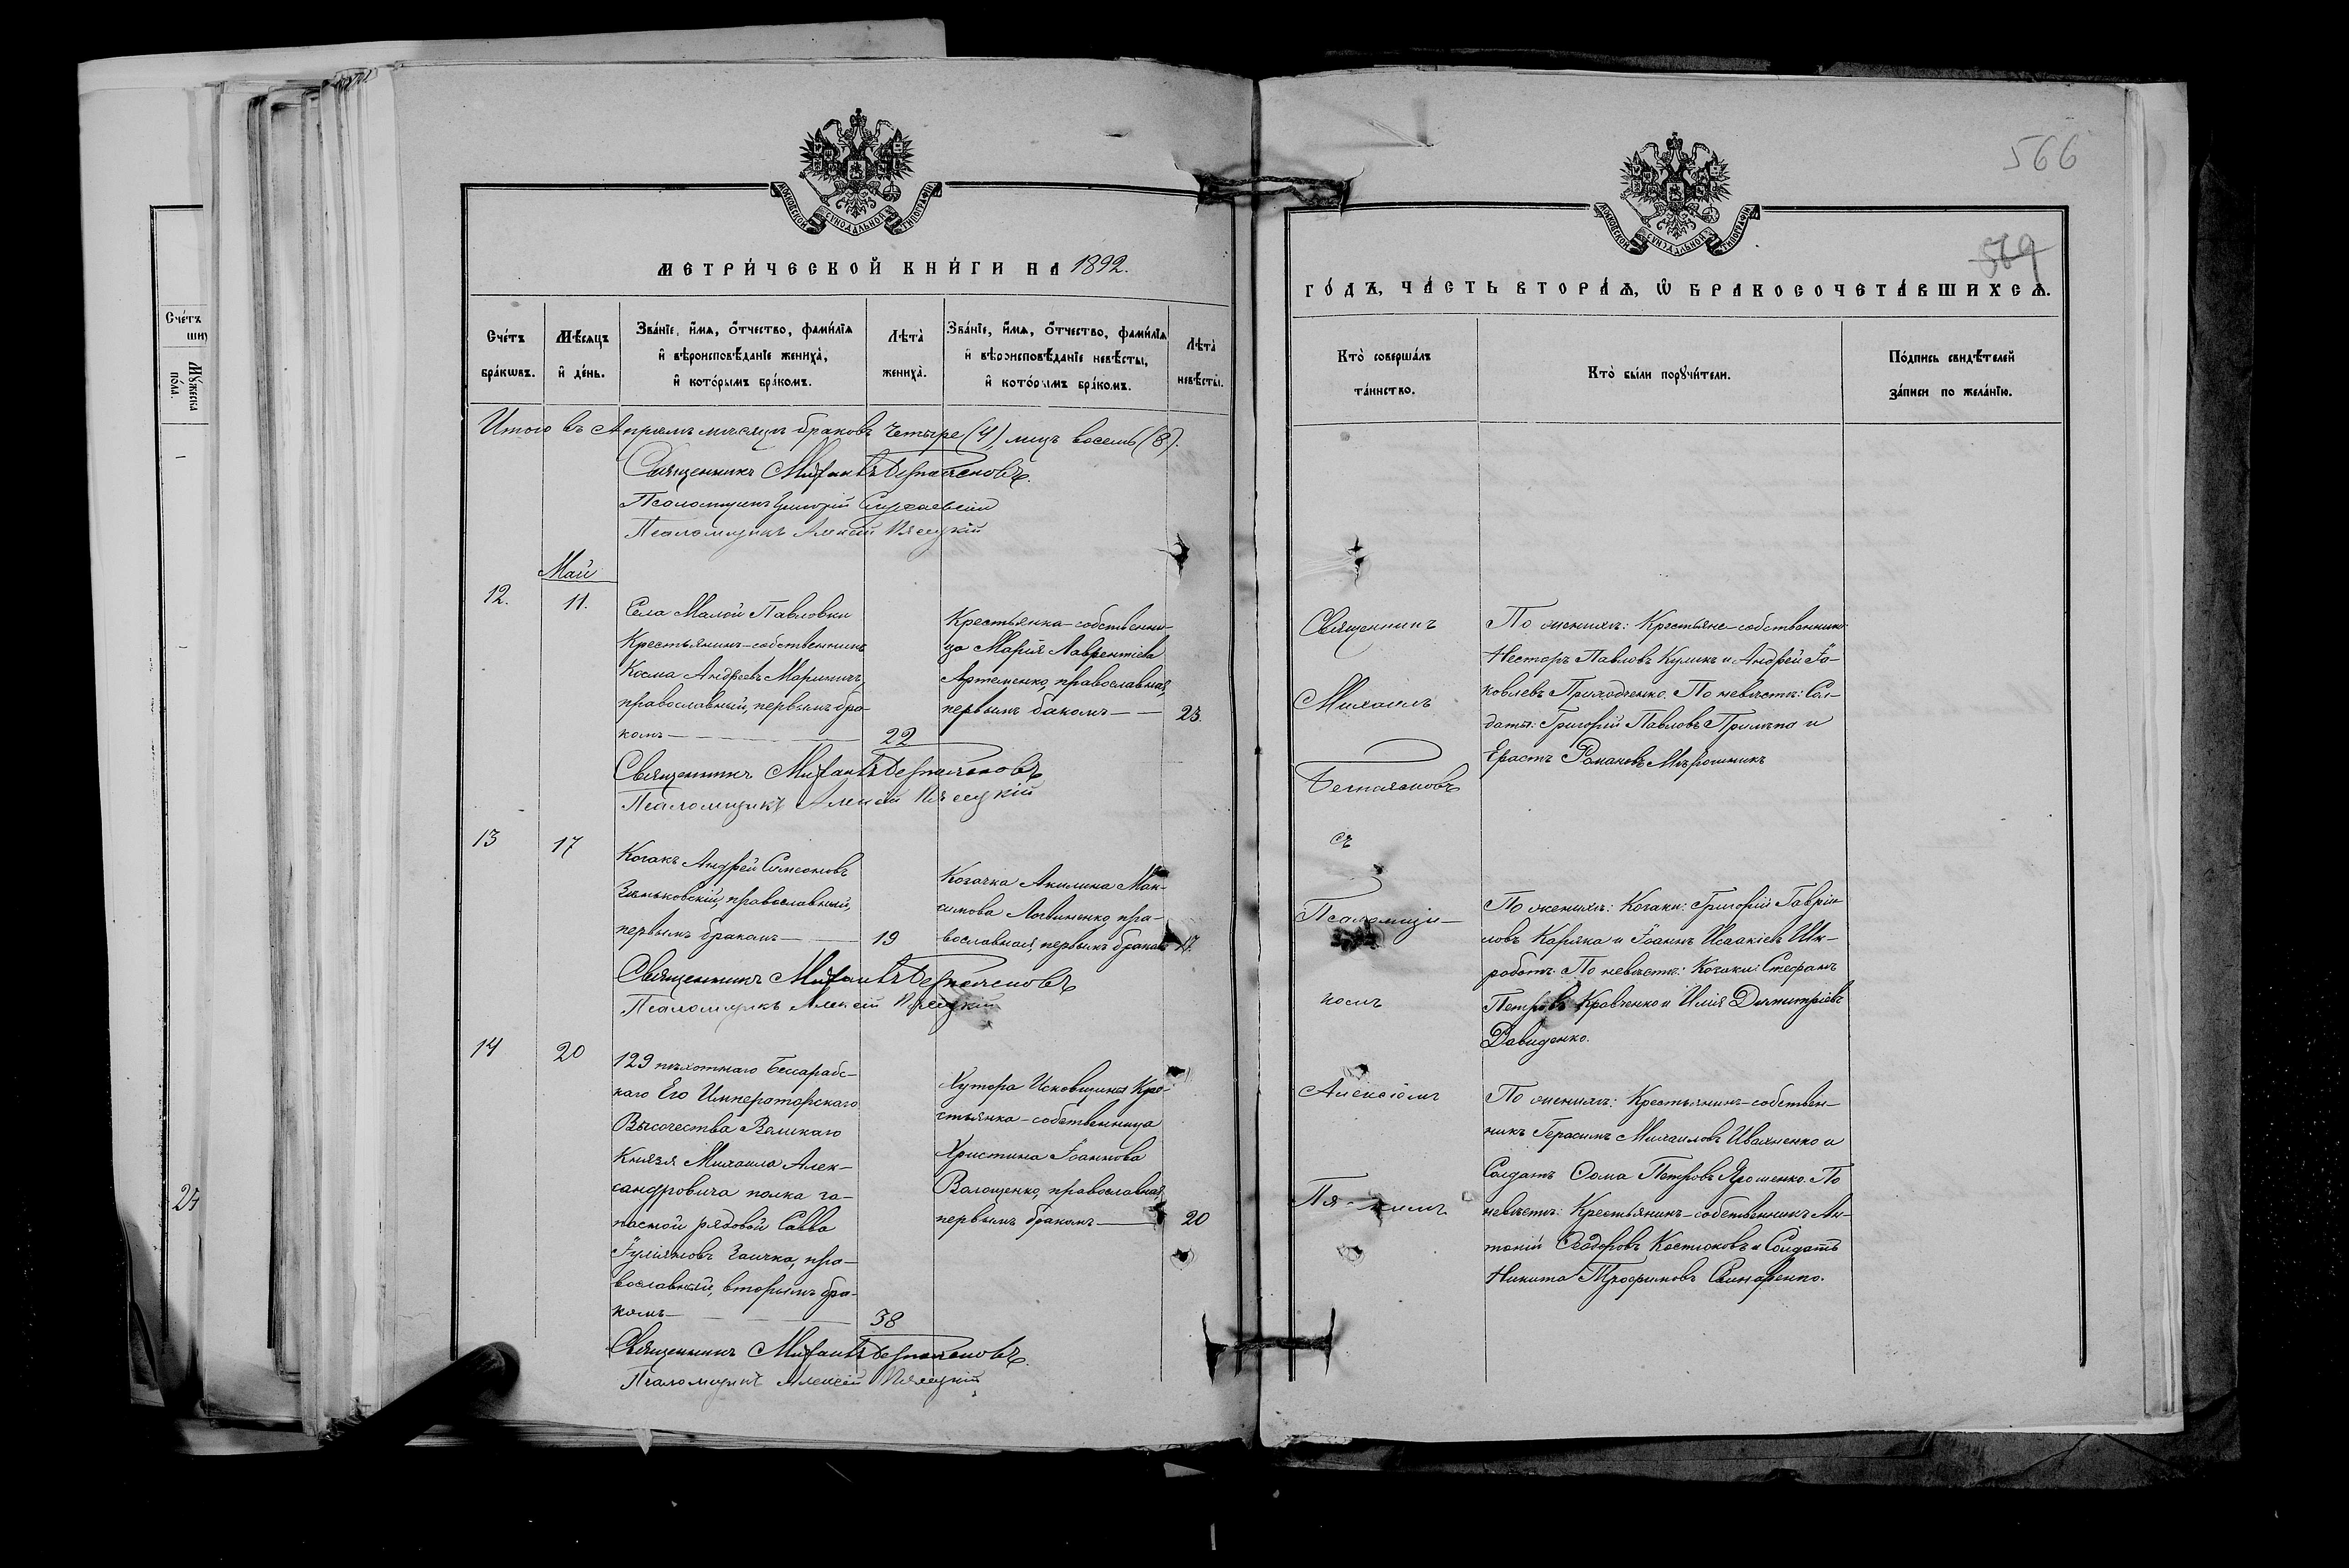 566
569
МОСКОВСКОЙ СѴНОДАЛЬНОЙ ТИПОГРАФІИ
МЕТРИ́ЧЕСКОЙ КНИ́ГИ НА 1892.
Сче́тъ бра́кѡвъ.
Мѣ́сяцъ и҆ де́нь.
Зва́нїе, и҆́мѧ, ѻ҆́тчество, фами́лїѧ
и҆ вѣроисповѣ́данїе жениха̀,
и҆ кото́рымъ бра́комъ.
Лѣта̀ жениха̀.
Зва́нїе, и҆́мѧ, ѻ҆́тчество, фами́лїѧ
и҆ вѣроисповѣ́данїе невѣ́сты,
и҆ кото́рымъ бра́комъ.
Лѣта̀ невѣ́сты.
Итого въ Апрѣлѣ мѣсяцѣ браковъ четыре (4), лицъ восемь (8).
Священникъ Михаилъ
Псаломщикъ Григорій
Псаломщикъ Алексій Пясецкій
Май
12.
11.
Села Малой Павловки
Крестьянинъ-собственникъ
Косма Андреевъ Мариничъ,
православный, первымъ бра-
комъ
22
Крестьянка-собственни-
ца Марія Лаврентіева
Артеменко, православная,
первымъ баком
23.
Священникъ Михаилъ
Псаломщикъ Алексій Пясецкій
13
17
Козакъ Андрей Симеоновъ
Зиньковскій, православный,
первымъ бракомъ
19
Козачка Акилина Мак-
симова Логвиненко, пра-
вославная, первымъ бракомъ
17.
Священникъ Михаилъ
Псаломщикъ Алексій Пясецкій
14
20
129 пѣхотнаго Бессарабс-
каго Его Императорскаго
Высочества Великаго
Князя Михаила Алек-
сандровича полка за-
пасной рядовой Савва
Іуліановъ Заичка, пра-
вославный, вторымъ бра-
комъ
38
Хутора Исковщины Кре-
стьянка-собственница
Христина Іоаннова
Волощенко, православная,
первымъ бракомъ
20
Священникъ Михаилъ
Псаломщикъ Алексій Пясецкій
МОСКОВСКОЙ СѴНОДАЛЬНОЙ ТИПОГРАФІИ
ГО́ДЪ, ЧА́СТЬ ВТОРА́Ѧ, Ѽ БРАКОСОЧЕТА́ВШИХСѦ.
Кто̀ соверша́лъ
та́инство.
Кто̀ бы́ли порꙋчи́тели.
По́дпись свидѣ́телей
за́писи по жела́нїю.
Священникъ
Михаилъ
съ
Псаломщи-
комъ
Алексіемъ
Пя-
По женихѣ: Крестьяне-собственники:
Несторъ Павловъ Куликъ и Андрей Іа-
ковлевъ Приходченко. По невѣстѣ: Сол-
даты: Григорій Павловъ и
Ерастъ Романовъ Мѣрошникъ
По женихѣ: Козаки: Григорій Гаврии-
ловъ Каряка и Іоаннъ Исаакіевъ
По невѣстѣ: Козаки: Стефанъ
Петровъ Кравченко и Илія Димитріевъ
Давиденко.
По женихѣ: Крестьянинъ-собствен-
никъ Герасимъ Михаиловъ Ивахненко и
Солдатъ Ѳома Петровъ Ярошенко. По
невѣстѣ: Крестьянинъ-собственникъ Ан-
тоній Ѳеодоровъ Костюковъ и Солдатъ
Никита Трофимовъ Слинаренко.
Сче́тъ
24